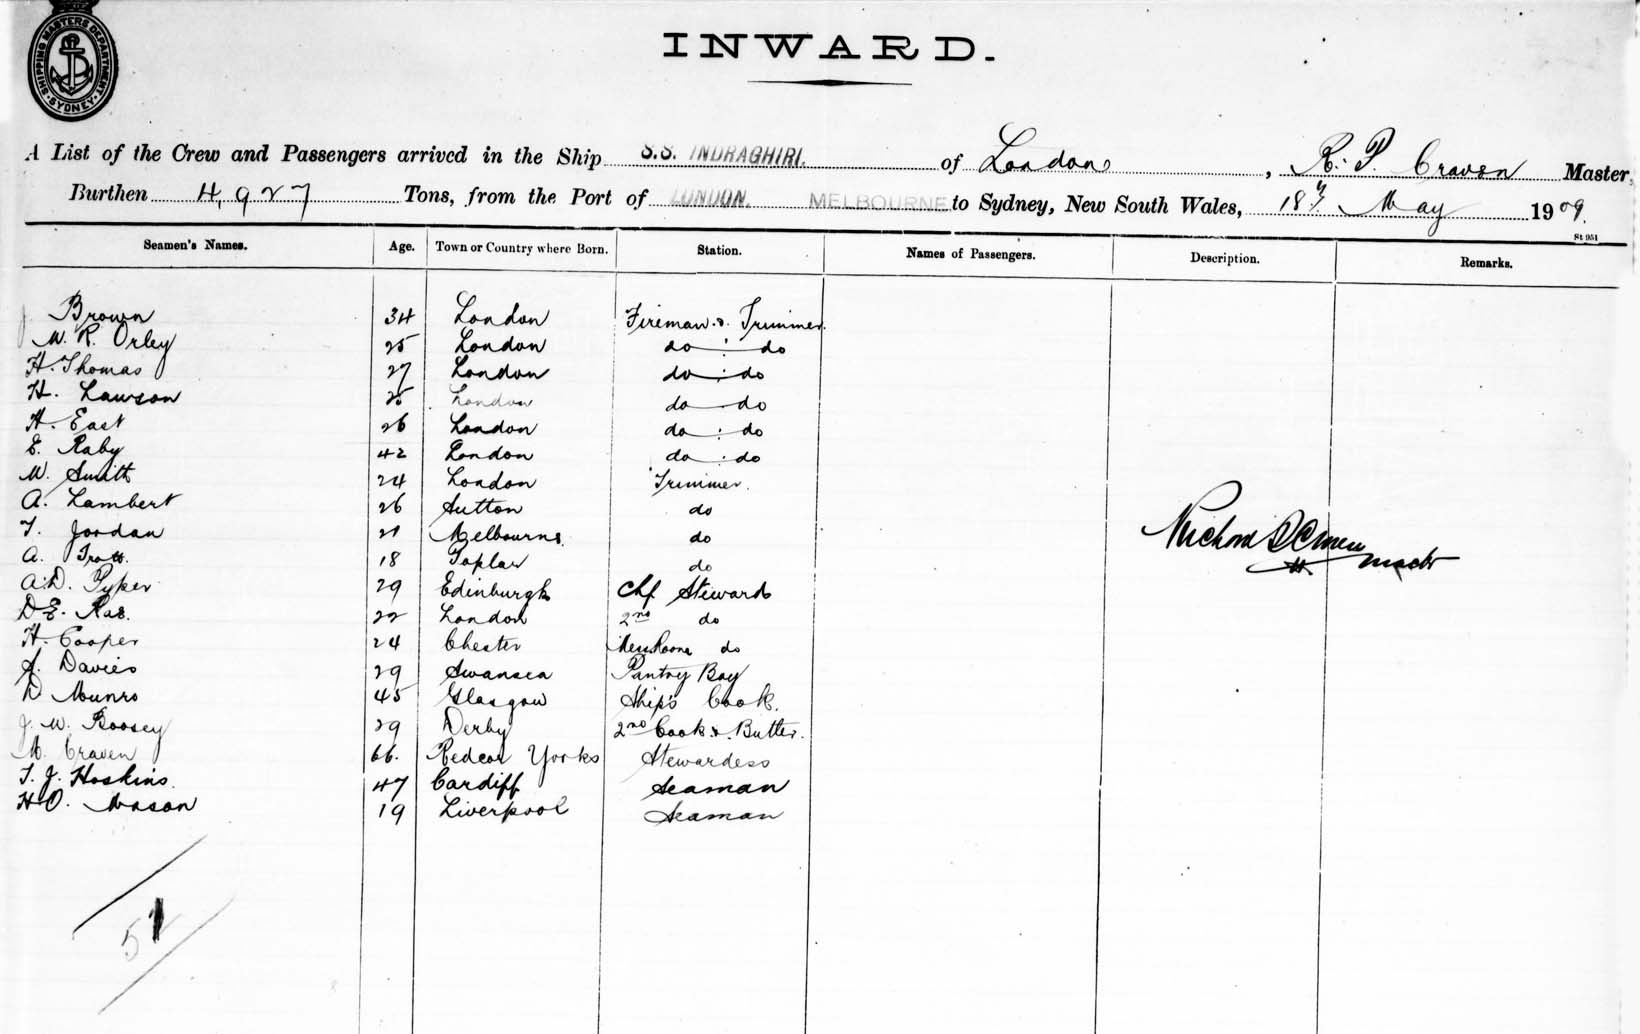 SHIPPING MASTERS DEPARTMENT · SYDNEY ·
INWARD.
A List of the Crew and Passengers arrived in the Ship S.S. INDRAGHIRI. of London, R. P. Craven Master,
Burthen 4,927 Tons, from the Port of LONDON. MELBOURNE to Sydney, New South Wales, 18th May 1909.
St 951
Seamen's Names. Age. Town or Country where Born. Station. Names of Passengers. Description. Remarks.
J Brown 34 London Fireman & Trimmer.
W. R. Orley 25 London do : do
H. Thomas 27 London do : do
H. Lawson 25 London do do
H. East 26 London do : do
E. Raby 42 London do : do
W. Smith 24 London Trimmer.
A. Lambert 26 Sutton do
T. Jordan 21 Melbourne do
A. Trott. 18 Poplar do
A.D. Pyper 29 Edinburgh Chf Steward
D E. Rae. 22 London 2nd do
H. Cooper 24 Chester Mess Room do
J. Davies 29 Swansea Pantry Boy
D Munro 45 Glasgow Ship's Cook.
J. W. Boosey 29 Derby 2nd Cook & Butler.
M. Craven 66. Redcar Yorks Stewardess
T. J. Hoskins. 47 Cardiff Seaman
H O. Mason 19 Liverpool Seaman
Richard Craven